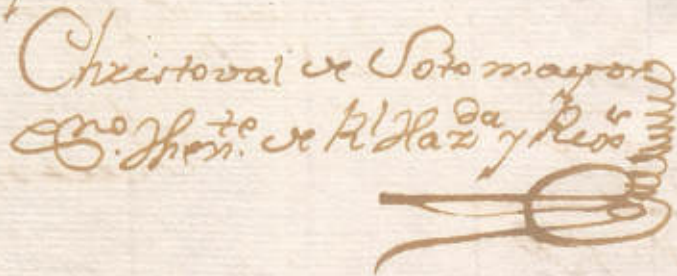 Christoval de Sotomayor
Sno. Thente. de Rl Hazda y